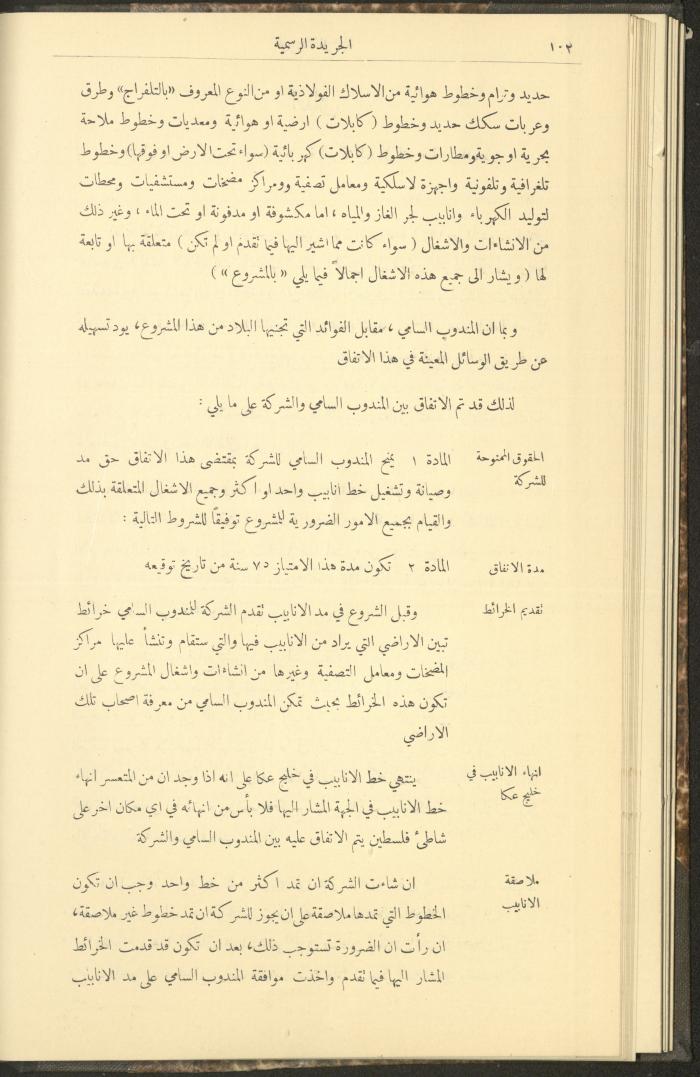 ١٠٢
الجريدة الرسمية
حديد وترام وخطوط هوائية من الاسلاك الفولاذية او من النوع المعروف «بالتلفراج» وطرق
وعربات سكك حديد وخطوط (كابلات) ارضية او هوائية ومعديات وخطوط ملاحة
بحرية او جوية ومطارات وخطوط (كابلات) كهربائية (سواء تحت الارض او فوقها) وخطوط
تلغرافية وتلفونية واجهزة لاسلكية ومعامل تصفية ومراكز مضخات ومستشفيات ومحطات
لتوليد الكهرباء وانابيب لجر الغاز والمياه، اما مكشوفة او مدفونة او تحت الماء، وغير ذلك
من الانشاءات والاشغال (سواء كانت مما اشير اليها فيما تقدم او لم تكن) متعلقة بها او تابعة
لها (ويشار الى جميع هذه الاشغال اجمالاً فيما يلي «بالمشروع»)
وبما ان المندوب السامي، مقابل الفوائد التي تجنيها البلاد من هذا المشروع، يود تسهيله
عن طريق الوسائل المعينة في هذا الاتفاق
لذلك قد تم الاتفاق بين المندوب السامي والشركة على ما يلي:
الحقوق الممنوحة
للشركة
المادة ١ يمنح المندوب السامي للشركة بمقتضى هذا الاتفاق حق مد
وصيانة وتشغيل خط انابيب واحد او اكثر وجميع الاشغال المتعلقة بذلك
والقيام بجميع الامور الضرورية للمشروع توفيقاً للشروط التالية:
مدة الاتفاق
المادة ٢ تكون مدة هذا الامتياز ٧٥ سنة من تاريخ توقيعه
تقديم الخرائط
وقبل الشروع في مد الانابيب تقدم الشركة للمندوب السامي خرائط
تبين الاراضي التي يراد من الانابيب فيها والتي ستقام وتنشأ عليها مراكز
المضخات ومعامل التصفية وغيرها من انشاءات واشغال المشروع على ان
تكون هذه الخرائط بحيث تمكن المندوب السامي من معرفة اصحاب تلك
الاراضي
انهاء الانابيب في
خليج عكا
ينتهي خط الانابيب في خليج عكا على انه اذا وجد ان من المتعسر انهاء
خط الانابيب في الجهة المشار اليها فلا بأس من انهائه في اي مكان اخر على
شاطئ فلسطين يتم الاتفاق عليه بين المندوب السامي والشركة
ملاصقة
الانابيب
ان شاءت الشركة ان تمد اكثر من خط واحد وجب ان تكون
الخطوط التي تمدها ملاصقة على ان يجوز للشركة ان تمد خطوط غير ملاصقة،
ان رأت ان الضرورة تستوجب ذلك، بعد ان تكون قد قدمت الخرائط
المشار اليها فيما تقدم واخذت موافقة المندوب السامي على مد الانابيب